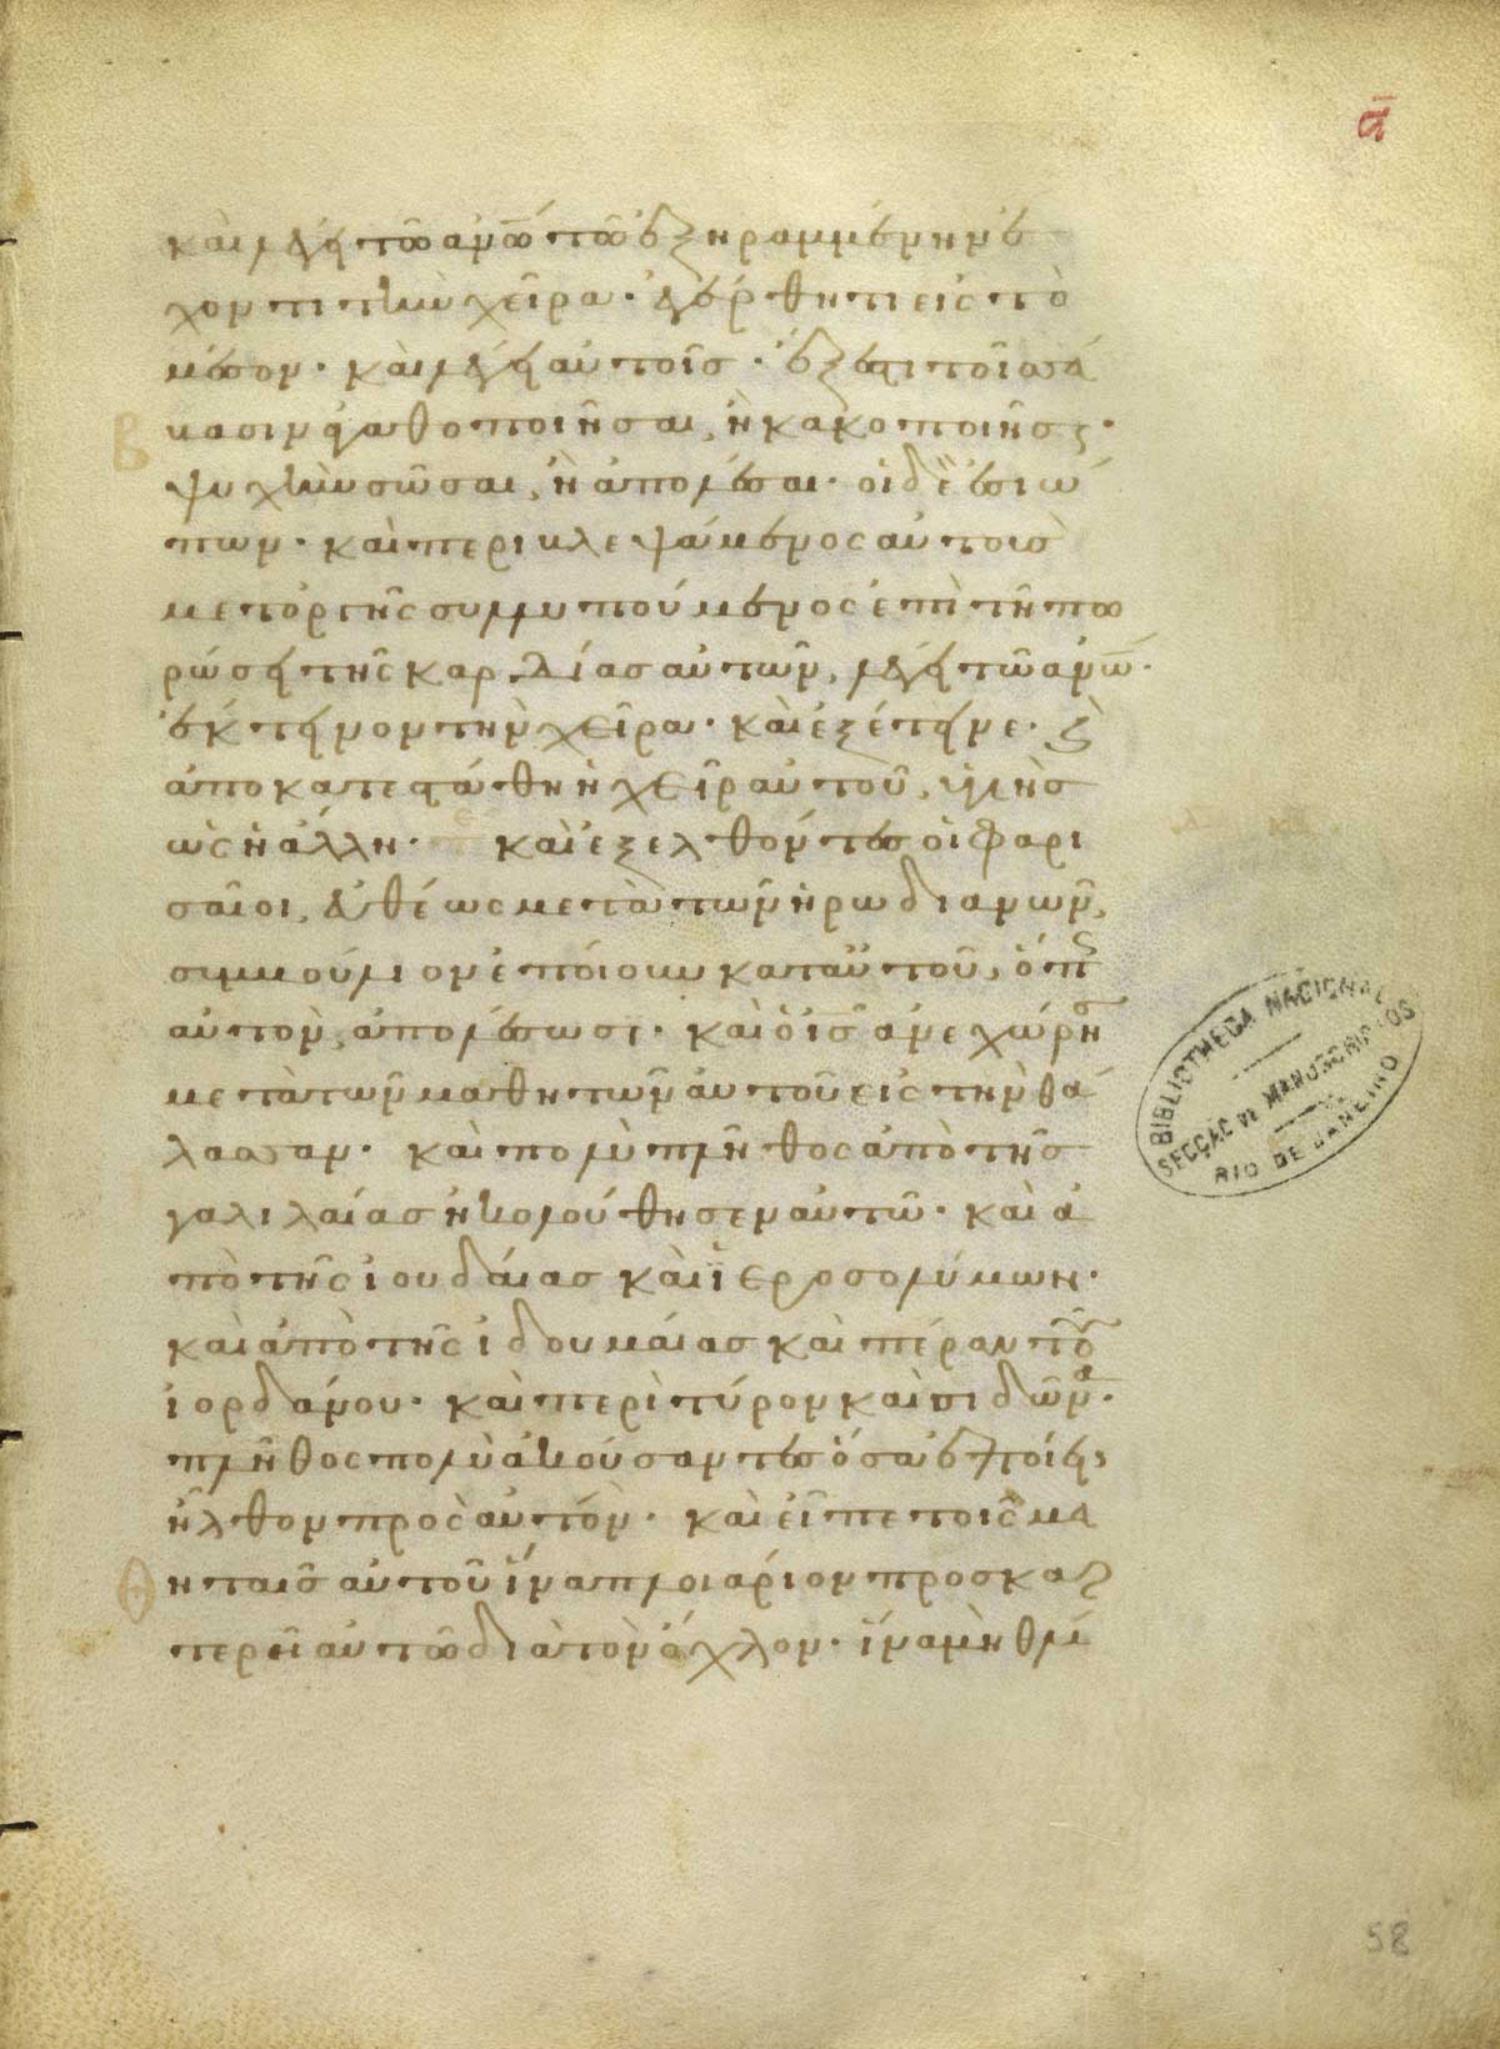 ᾱ
καὶ λέγει τῶ ἀν̅ω̅ τῶ ἐξηραμμένην ἔ
χοντι τὴν χεῖρα· ἔγερθητι εἰς τὸ
μέσον· καὶ λέγει αὐτοῖς· ἔξεστι τοῖς σά
βασιν ἀγαθοποιῆσαι, ἢ κακοποιῆσαι·
ψυχὴν σῶσαι, ἢ ἀπολέσαι· οἱ δὲ ἐσιώ
πων· καὶ περιβλεψάμενος αὐτοὺς
μετ' ὀργῆς συλλυπούμενος ἐπὶ τῆ πω
ρώσει τῆς καρδίας αὐτῶν, λέγει τῶ ἀν̅ω̅·
ἔκτεινον τὴν χεῖρα· καὶ ἐξέτεινε· καὶ
ἀποκατεστάθη ἡ χεῖρ αὐτοῦ, ὑγιὴς
ὡς ἡ ἄλλη· καὶ ἐξελθόντες οἱ φαρι
σαῖοι, εὐθέως μετὰ τῶν ἡρωδιανῶν,
συμβούλιον ἐποίουν κατ' αὐτοῦ, ὅπως
αὐτὸν ἀπολέσωσι· καὶ ὁ ι̅ς̅ ἀνεχώρησε
μετὰ τῶν μαθητῶν αὐτοῦ εἰς τὴν θά
λασσαν· καὶ πολὺ πλῆθος ἀπὸ τῆς
γαλιλαίας ἠκολούθησεν αὐτῶ· καὶ ἀ
πὸ τῆς ἰουδαίας καὶ ἱεροσολύμων·
καὶ ἀπὸ τῆς ἰδουμαίας καὶ πέραν τοῦ
ἰορδάνου· καὶ περὶ τύρον καὶ σιδῶνα·
πλῆθος πολὺ ἀκούσαντες ὅσα ἐποίει,
ἦλθον πρὸς αὐτόν· καὶ εἶπε τοῖς μα
θηταῖς αὐτοῦ ἵνα πλοιάριον προσκαρ
τερῆ αὐτῶ διὰ τὸν ὄχλον· ἵνα μὴ θλί
BIBLIOTHECA NACIONAL
SECÇÃO DE MANUSCRIPTOS
RIO DE JANEIRO
58